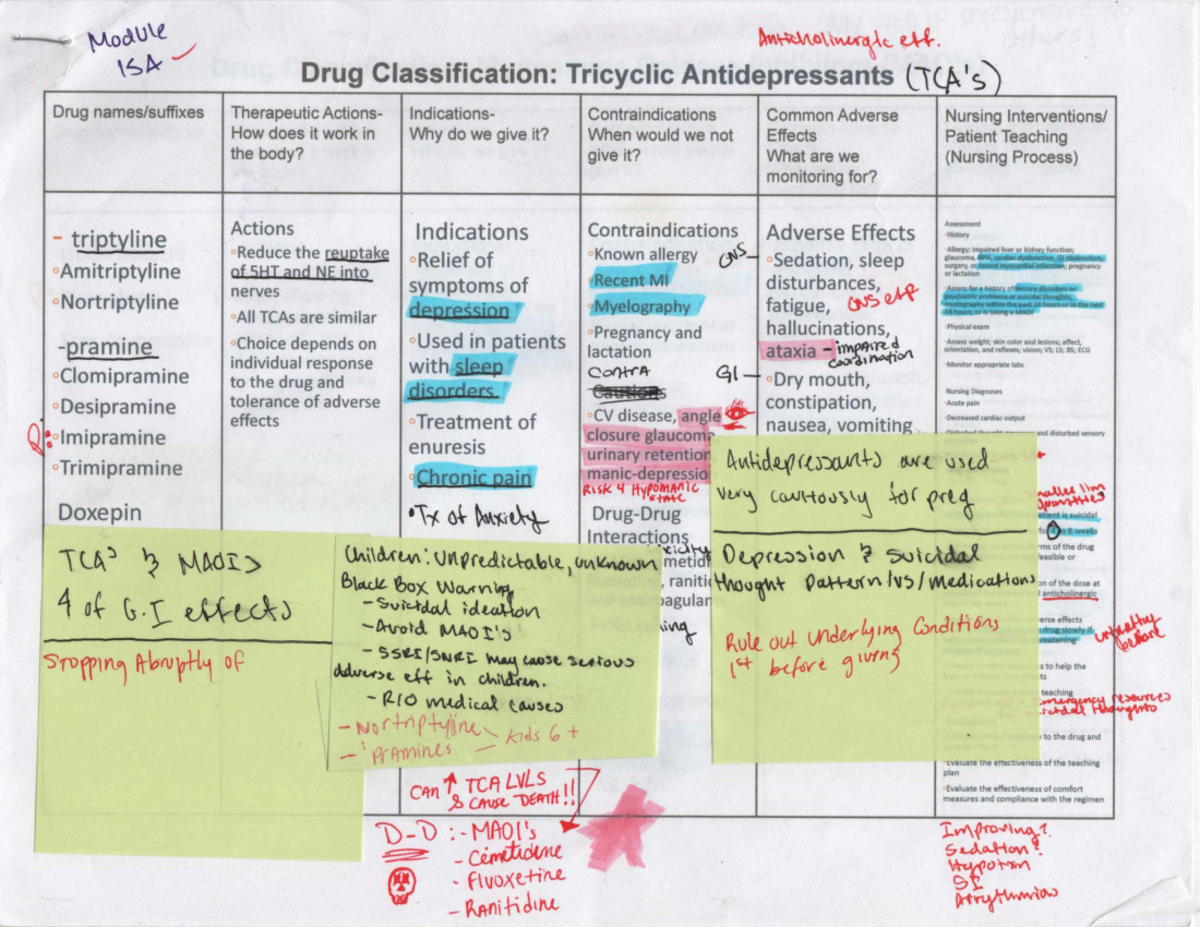 Module
15A
Anticholinergic eff.
Drug Classification: Tricyclic Antidepressants (TCA's)
Drug names/suffixes
Therapeutic Actions-
How does it work in
the body?
Indications-
Why do we give it?
Contraindications
When would we not
give it?
Common Adverse
Effects
What are we
monitoring for?
Nursing Interventions/
Patient Teaching
(Nursing Process)
- triptyline
Amitriptyline
Nortriptyline
-pramine
Clomipramine
Desipramine
Imipramine
Trimipramine
Doxepin
Actions
Reduce the reuptake
of 5HT and NE into
nerves
All TCAs are similar
Choice depends on
individual response
to the drug and
tolerance of adverse
effects
Indications
Relief of
symptoms of
depression
Used in patients
with sleep
disorders
Treatment of
enuresis
Chronic pain
•Tx of Anxiety
Contraindications
Known allergy
Recent MI
Myelography
Pregnancy and
lactation
Contra
Cautions
CV disease, angle
closure glaucoma
urinary retention
manic-depressio
Risk 4 Hypomanic
state
Drug-Drug
Interactions
xicity
metidi
raniti
agulant
ing
CNS
Adverse Effects
Sedation, sleep
disturbances,
fatigue, CNS eff
hallucinations,
ataxia - impaired
coordination
GI
Dry mouth,
constipation,
nausea, vomiting
Assessment
History
Allergy; impaired liver or kidney function;
glaucoma, BPH, cardiac dysfunction, GI obstruction,
surgery, or recent myocardial infarction; pregnancy
or lactation
Assess for a history of seizure disorders or
psychiatric problems or suicidal thoughts;
myelography within the past 24 hours or in the next
48 hours; or is taking a MAOI
Physical exam
Assess weight; skin color and lesions; affect,
orientation, and reflexes; vision; VS; LS; BS; ECG
Monitor appropriate labs
Nursing Diagnoses
Acute pain
Decreased cardiac output
and disturbed sensory
quantities
atient is suicidal
to 8 weeks
ms of the drug
feasible or
on of the dose at
anticholinergic
erse effects
drug slowly if
eatening
before
s to help the
ts
teaching
Emergency resources
icidal thoughts
to the drug and
Evaluate the effectiveness of the teaching
plan
Evaluate the effectiveness of comfort
measures and compliance with the regimen
Improving?
Sedation?
Hypotxn
SI
Arrythmias
TCAs & MAOIs
4 of G.I effects
Stopping Abruptly of
Children: Unpredictable, unknown
Black Box Warning
- Suicidal ideation
- Avoid MAOI's
- SSRI/SNRI may cause serious
adverse eff in children.
- R/O medical causes
- Nortriptyline
- 'pramines - kids 6+
Antidepressants are used
very cautiously for preg
Depression & suicidal
thought pattern/vs/medications
Rule out underlying conditions
1st before giving
Can ↑ TCA LVLS
& cause DEATH!!
D-D : - MAOI's
- Cimetidene
- Fluoxetine
- Ranitidine